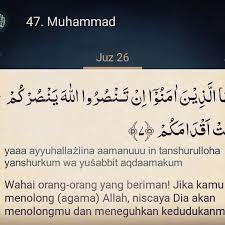 47. Muhammad
Juz 26
الَّذِيْنَ اٰمَنُوْٓا اِنْ تَنْصُرُوا اللّٰهَ يَنْصُرْكُمْ
اَقْدَامَكُمْ ﴿٧﴾
yaaa ayyuhallażiina aamanuuu in tanshurulloha
yanshurkum wa yuṡabbit aqdaamakum
Wahai orang-orang yang beriman! Jika kamu
menolong (agama) Allah, niscaya Dia akan
menolongmu dan meneguhkan kedudukanm